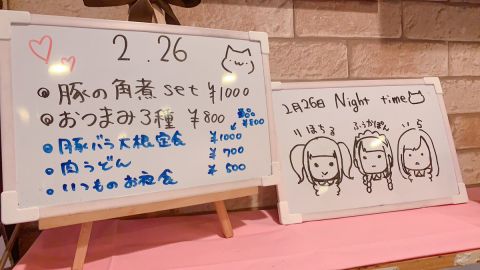 2.26
豚の角煮 set ¥1000
おつまみ3種 ¥800
豚バラ大根定食 ¥1000
肉うどん ¥700
いつものお夜食 ¥500
2月26日 Night time
ほちる
ふうかぽん
いら